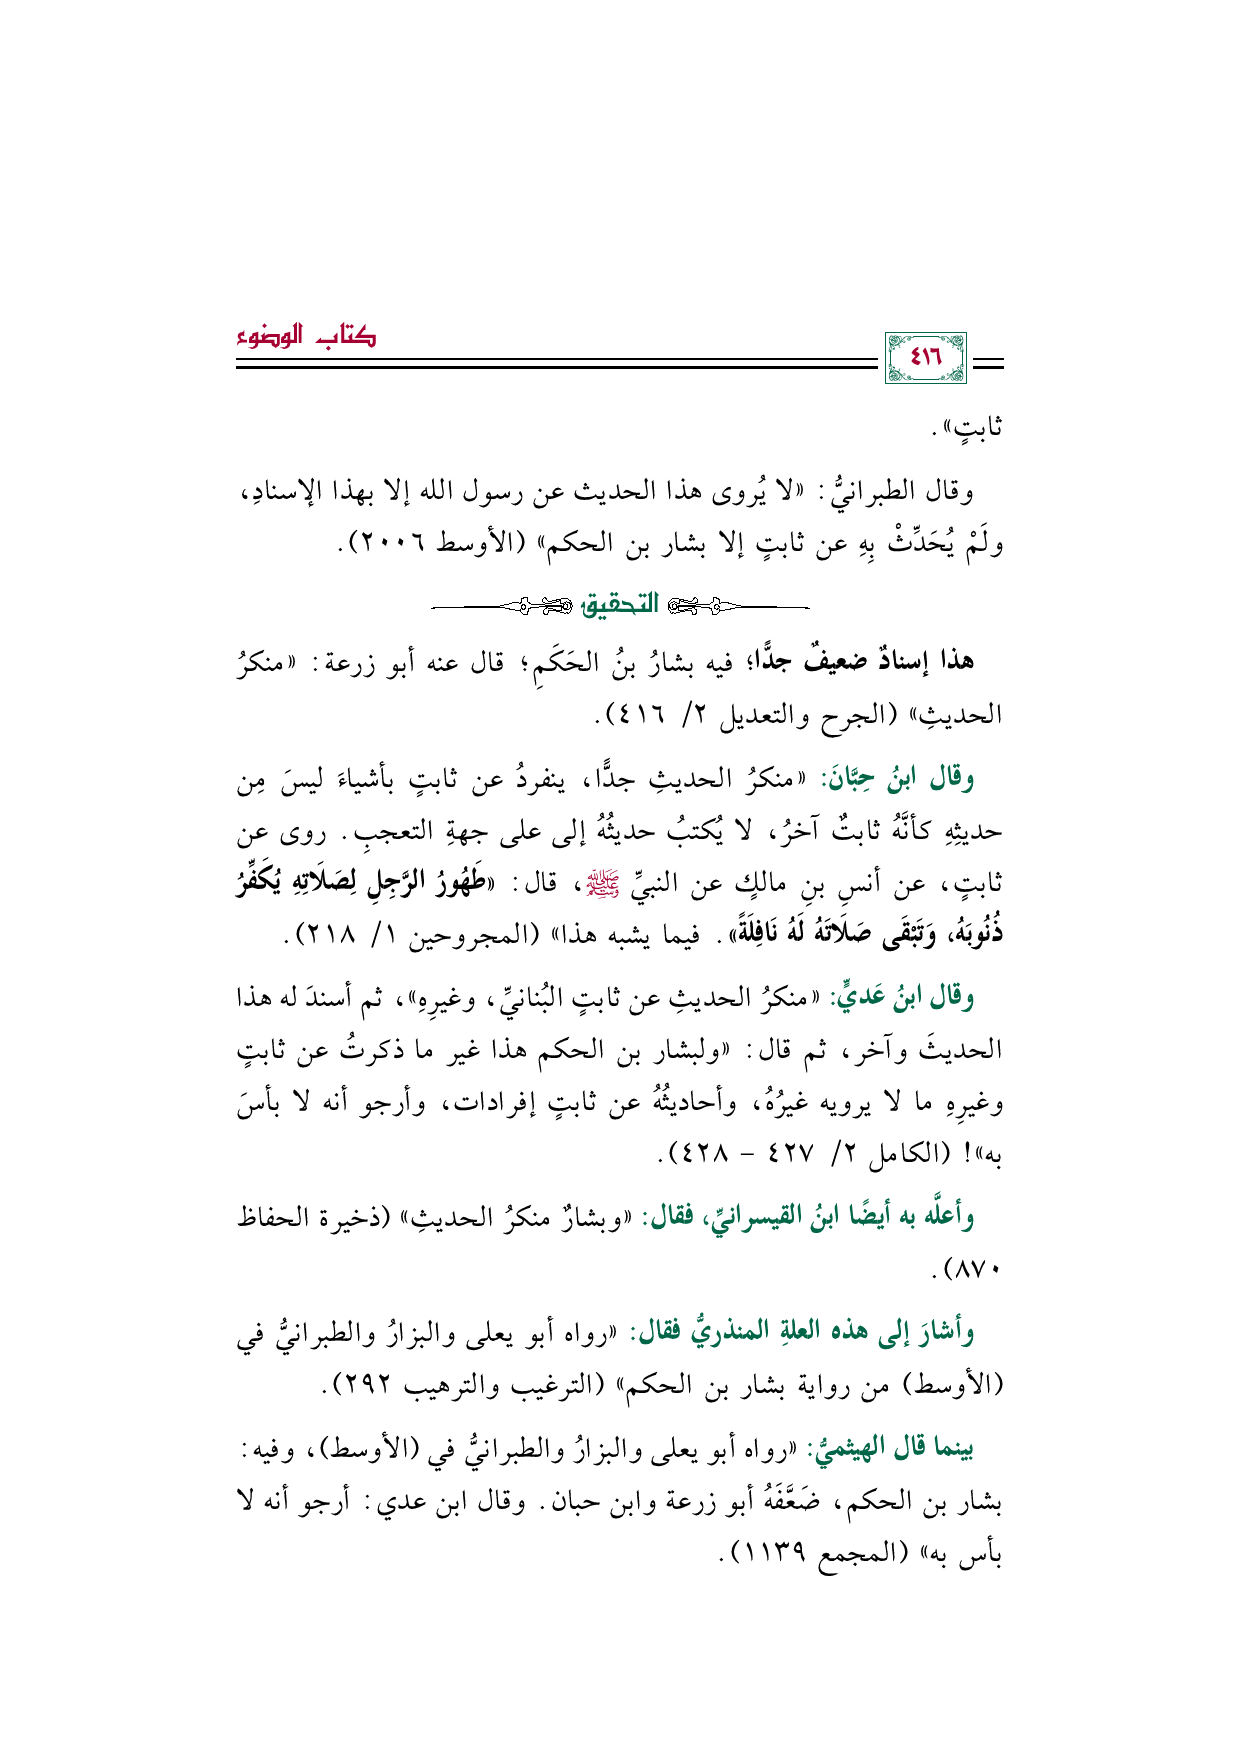 كتاب الوضوء
٤١٦
ثابتٍ».
وقال الطبرانيُّ: «لا يُروى هذا الحديث عن رسول الله إلا بهذا الإسنادِ،
ولَمْ يُحَدِّثْ بِهِ عن ثابتٍ إلا بشار بن الحكم» (الأوسط ٢٠٠٦).
التحقيق
هذا إسنادٌ ضعيفٌ جدًّا؛ فيه بشارُ بنُ الحَكَمِ؛ قال عنه أبو زرعة: «منكرُ
الحديثِ» (الجرح والتعديل ٢/ ٤١٦).
وقال ابنُ حِبَّانَ: «منكرُ الحديثِ جدًّا، ينفردُ عن ثابتٍ بأشياءَ ليسَ مِن
حديثِهِ كأنَّهُ ثابتٌ آخرُ، لا يُكتبُ حديثُهُ إلى على جهةِ التعجبِ. روى عن
ثابتٍ، عن أنسِ بنِ مالكٍ عن النبيِّ ﷺ، قال: «طَهُورُ الرَّجِلِ لِصَلَاتِهِ يُكَفِّرُ
ذُنُوبَهُ، وَتَبْقَى صَلَاتَهُ لَهُ نَافِلَةً». فيما يشبه هذا» (المجروحين ١/ ٢١٨).
وقال ابنُ عَديٍّ: «منكرُ الحديثِ عن ثابتٍ البُنانيِّ، وغيرِهِ»، ثم أسندَ له هذا
الحديثَ وآخر، ثم قال: «ولبشار بن الحكم هذا غير ما ذكرتُ عن ثابتٍ
وغيرِهِ ما لا يرويه غيرُهُ، وأحاديثُهُ عن ثابتٍ إفرادات، وأرجو أنه لا بأسَ
به»! (الكامل ٢/ ٤٢٧ - ٤٢٨).
وأعلَّه به أيضًا ابنُ القيسرانيِّ، فقال: «وبشارٌ منكرُ الحديثِ» (ذخيرة الحفاظ
٨٧٠).
وأشارَ إلى هذه العلةِ المنذريُّ فقال: «رواه أبو يعلى والبزارُ والطبرانيُّ في
(الأوسط) من رواية بشار بن الحكم» (الترغيب والترهيب ٢٩٢).
بينما قال الهيثميُّ: «رواه أبو يعلى والبزارُ والطبرانيُّ في (الأوسط)، وفيه:
بشار بن الحكم، ضَعَّفَهُ أبو زرعة وابن حبان. وقال ابن عدي: أرجو أنه لا
بأس به» (المجمع ١١٣٩).